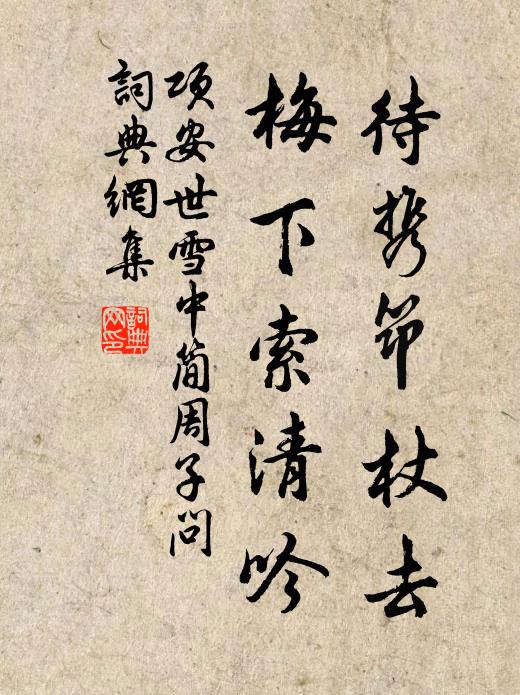 待携笻杖去
梅下索清吟
项安世雪中简周子问
詞典網集
詞典网印